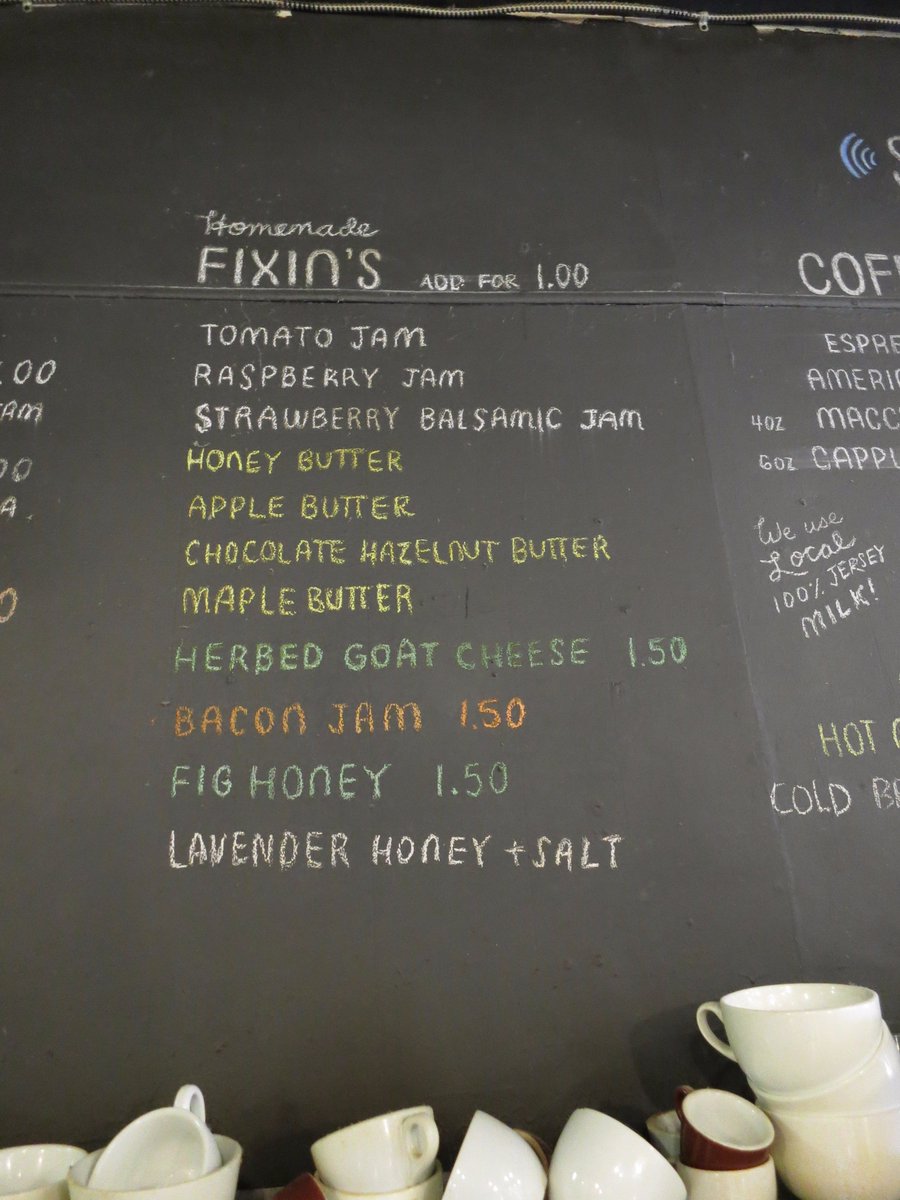 Homemade
FIXIN'S ADD FOR 1.00
TOMATO JAM
RASPBERRY JAM
STRAWBERRY BALSAMIC JAM
HONEY BUTTER
APPLE BUTTER
CHOCOLATE HAZELNUT BUTTER
MAPLE BUTTER
HERBED GOAT CHEESE 1.50
BACON JAM 1.50
FIG HONEY 1.50
LAVENDER HONEY + SALT
.00
JAM
00
A
0
COF
ESPRE
AMERI
4OZ MACC
6OZ CAPPU
We use
Local
100% JERSEY
MILK!
HOT
COLD BR